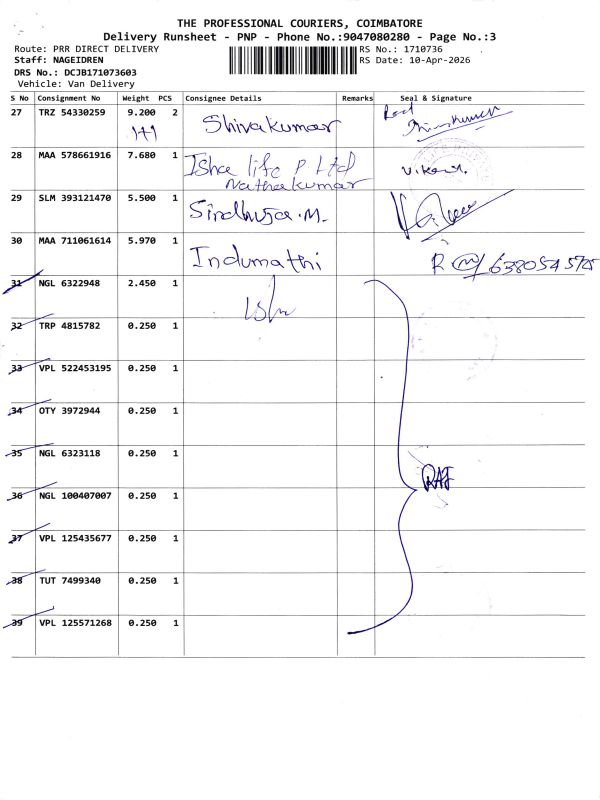 THE PROFESSIONAL COURIERS, COIMBATORE
Delivery Runsheet - PNP - Phone No.:9047080280 - Page No.:3
Route: PRR DIRECT DELIVERY
RS No.: 1710736
Staff: NAGEIDREN
RS Date: 10-Apr-2026
DRS No.: DCJB171073603
Vehicle: Van Delivery
S No Consignment No Weight PCS Consignee Details Remarks Seal & Signature
27 TRZ 54330259 9.200 2 Shivakumar
1+1
28 MAA 578661916 7.680 1 Isha life P Ltd
Nathakumar
29 SLM 393121470 5.500 1 Sindhuja.M.
30 MAA 711061614 5.970 1 Indumathi R 6380545725
31 NGL 6322948 2.450 1
32 TRP 4815782 0.250 1
33 VPL 522453195 0.250 1
34 OTY 3972944 0.250 1
35 NGL 6323118 0.250 1
RAJ
36 NGL 100407007 0.250 1
37 VPL 125435677 0.250 1
38 TUT 7499340 0.250 1
39 VPL 125571268 0.250 1